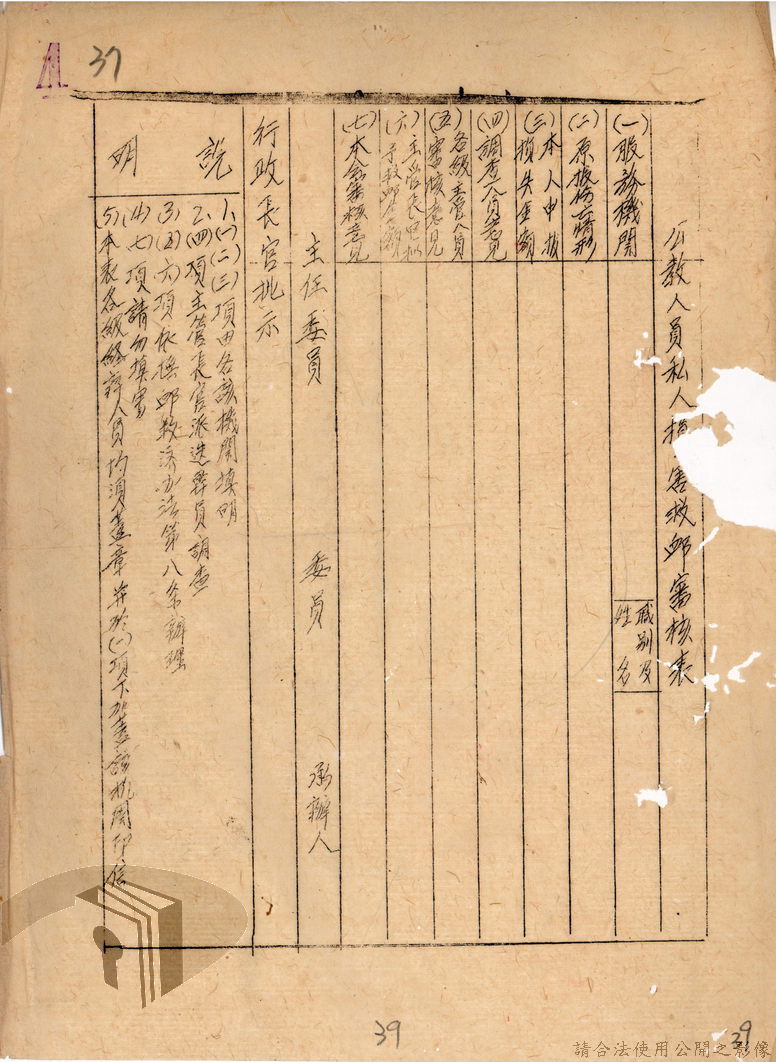 37
公教人員私人損害救卹審核表
(一)服務機關
職別及
姓名
(二)原报伤亡情形
(三)本人申报
損失金額
(四)調查人員意見
(五)各級主管人員
審核意見
(六)主管長官批
予救卹金額
(七)本会審核意見
主任委員 委員 承辦人
行政長官批示
說明
1.(一)(二)(三)項由各該機關填明
2.(四)項主管長官派送幹員調查
(3)(五)(六)項依撫卹救济办法第八条辦理
(4)(七)項請勿填寫
(5)本表各級經辦人員均須蓋章并於(一)項下加盖該机関印信
39
39
請合法使用公開之影像